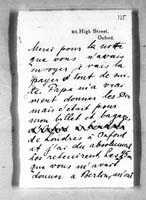 125
82, High Street,
Oxford.
Merci pour la note
que vous m'avez
envoyée, je vais la
payer tout de sui-
te. Papa m'a vrai-
ment donné les
mais c'était pour
mon billet et bagage
de Londres à Oxford
et j'ai dû absolument
les
que vous m'avez
donné à Berlin,